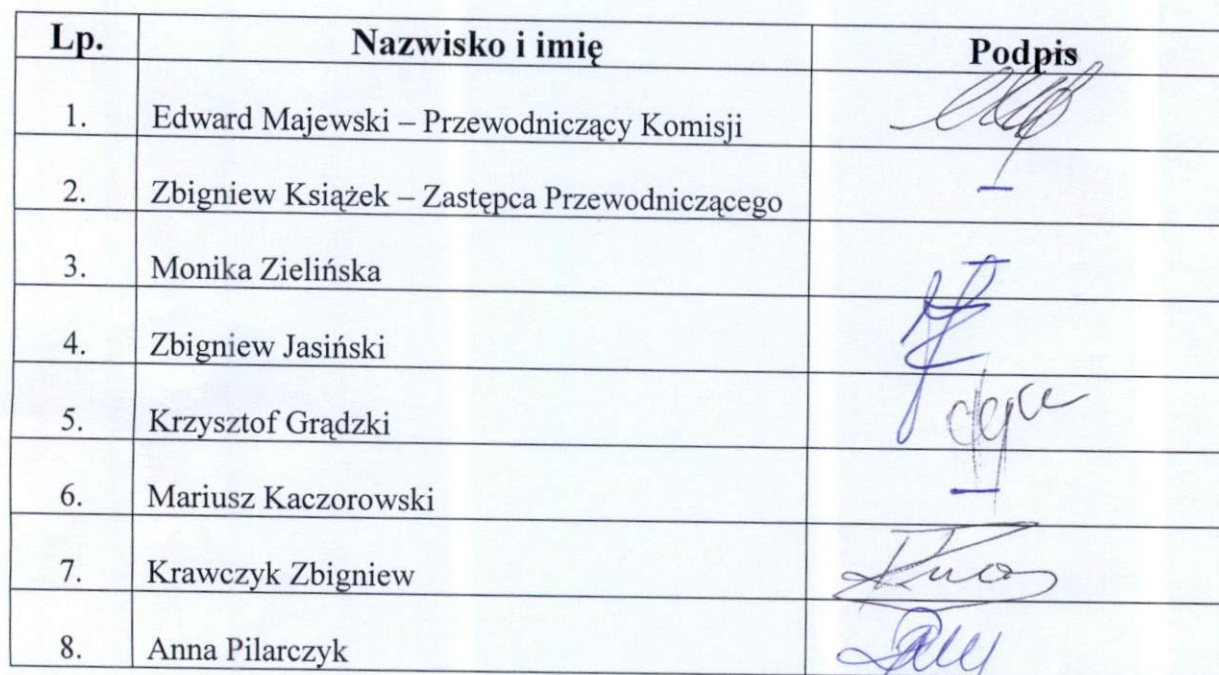 Lp. Nazwisko i imię Podpis
1. Edward Majewski – Przewodniczący Komisji
2. Zbigniew Książek – Zastępca Przewodniczącego —
3. Monika Zielińska —
4. Zbigniew Jasiński
5. Krzysztof Grądzki
6. Mariusz Kaczorowski —
7. Krawczyk Zbigniew
8. Anna Pilarczyk